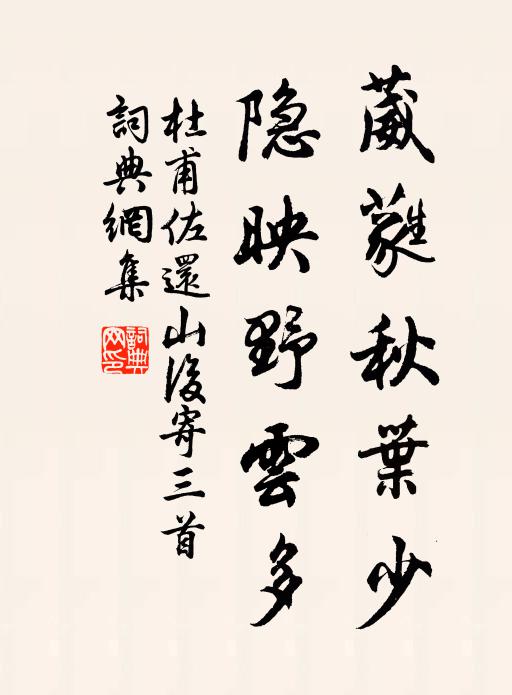 葳蕤秋葉少
隐映野雲多
杜甫佐還山後寄三首
詞典網集
詞典网印